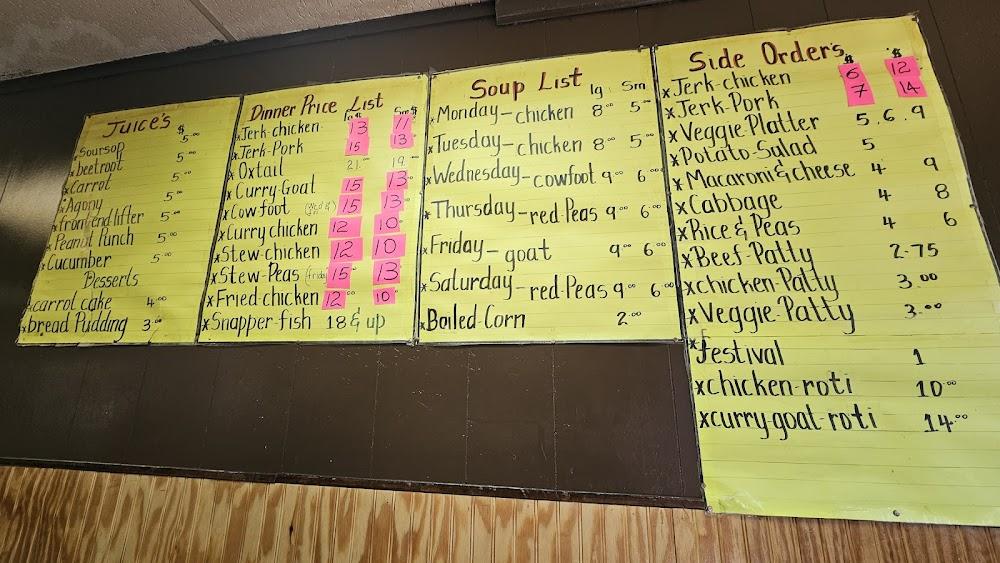 Juice's $
*Soursop 5.00
*beetroot 5.00
*Carrot 5.00
*Agony 5.00
*front end lifter 5.00
*Peanut Punch 5.00
*Cucumber 5.00
Desserts
*carrot cake 4.00
*bread Pudding 3.00
Dinner Price List
Sm $
*Jerk-chicken 13 11
*Jerk-Pork 15 13
*Oxtail 21.00 19.00
*Curry-Goat 15 13
*Cow foot 15 13
*Curry chicken 12 10
*Stew-chicken 12 10
*Stew-Peas (friday 15 13
*Fried-chicken 12.00 10.00
*Snapper-fish 18 & up
Soup List
lg Sm
*Monday-chicken 8.00 5.00
*Tuesday-chicken 8.00 5.00
*Wednesday-cowfoot 9.00 6.00
*Thursday-red-Peas 9.00 6.00
*Friday-goat 9.00 6.00
*Saturday-red-Peas 9.00 6.00
*Boiled-Corn 2.00
Side Order's $ $
*Jerk-chicken 6 12
*Jerk-Pork 7 14
*Veggie-Platter 5, 6, 9
*Potato-Salad 5
*Macaroni & cheese 4 9
*Cabbage 4 8
*Rice & Peas 4 6
*Beef-Patty 2.75
*chicken-Patty 3.00
*Veggie-Patty 3.00
*festival 1
*chicken-roti 10.00
*curry-goat-roti 14.00